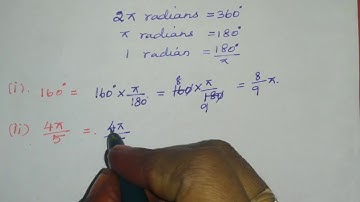 2π radians = 360°
π radians = 180°
1 radian = 180°/π
(i). 160° = 160° × π/180° = 8 160° × π/180° 9 = 8/9 π.
(ii) 4π/5 = 4π